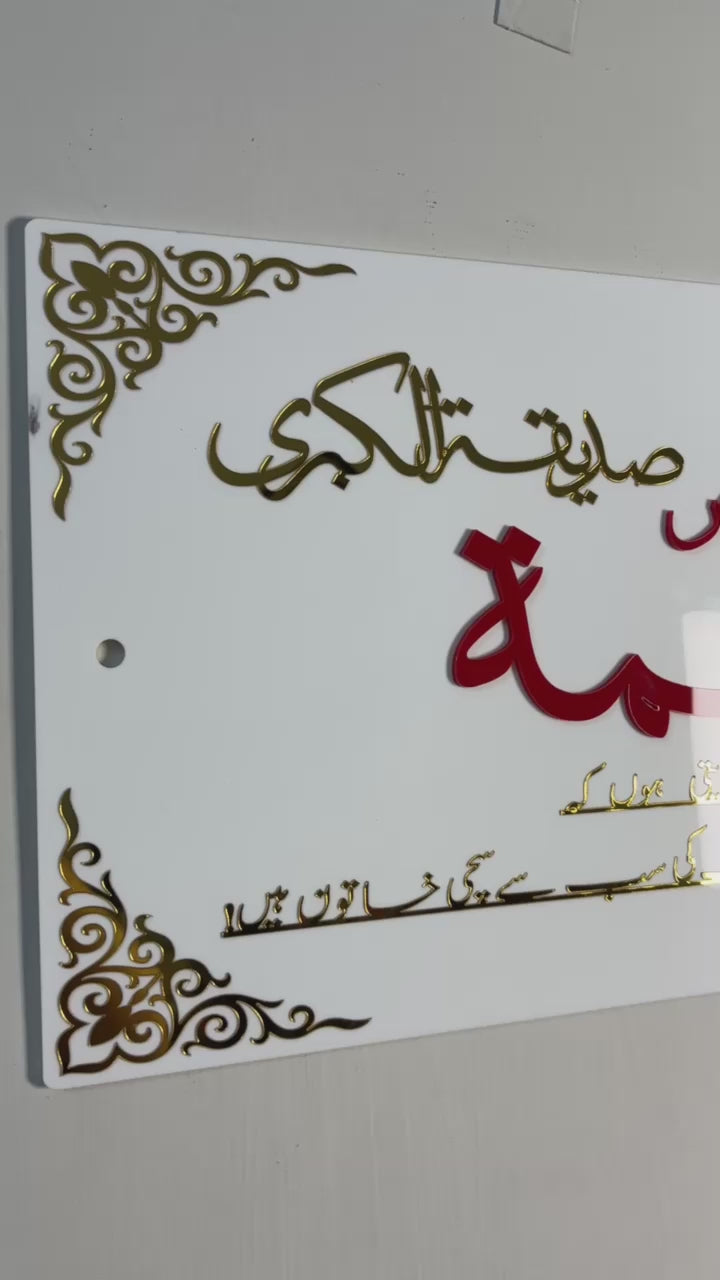 صدیقۃ الکبری
مة
ہوں کہ
کی سب سے سچی خاتون ہیں!